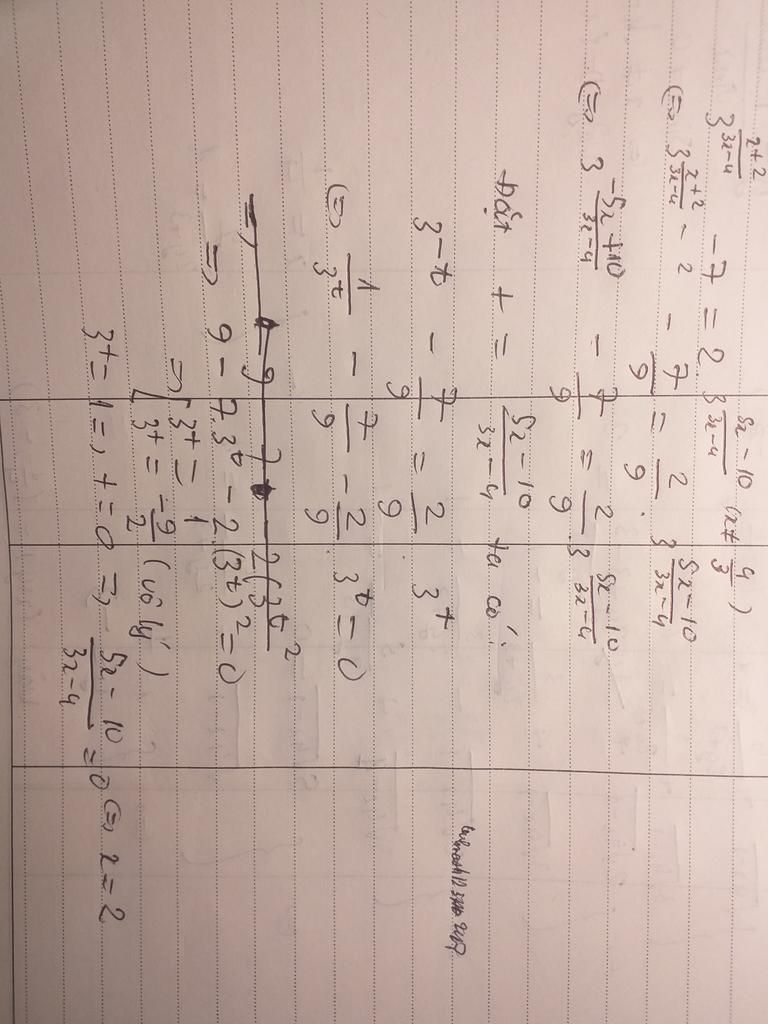 3^{\frac{x+2}{3x-4}} - 7 = 2.3^{\frac{5x-10}{3x-4}} (x≠\frac{4}{3})
(=> 3^{\frac{x+2}{3x-4} - 2} - \frac{7}{9} = \frac{2}{9}.3^{\frac{5x-10}{3x-4}}
(=> 3^{\frac{-5x+10}{3x-4}} - \frac{7}{9} = \frac{2}{9}.3^{\frac{5x-10}{3x-4}}
Đặt t = \frac{5x-10}{3x-4} ta có:
3^{-t} - \frac{7}{9} = \frac{2}{9}.3^t
(=> \frac{1}{3^t} - \frac{7}{9} - \frac{2}{9}.3^t = 0
=> 9 - 7.3^t - 2.(3^t)^2 = 0
=> [3^t = 1
3^t = \frac{-9}{2} (vô lý)
3^t = 1 => t = 0 => \frac{5x-10}{3x-4} = 0 (=> x = 2